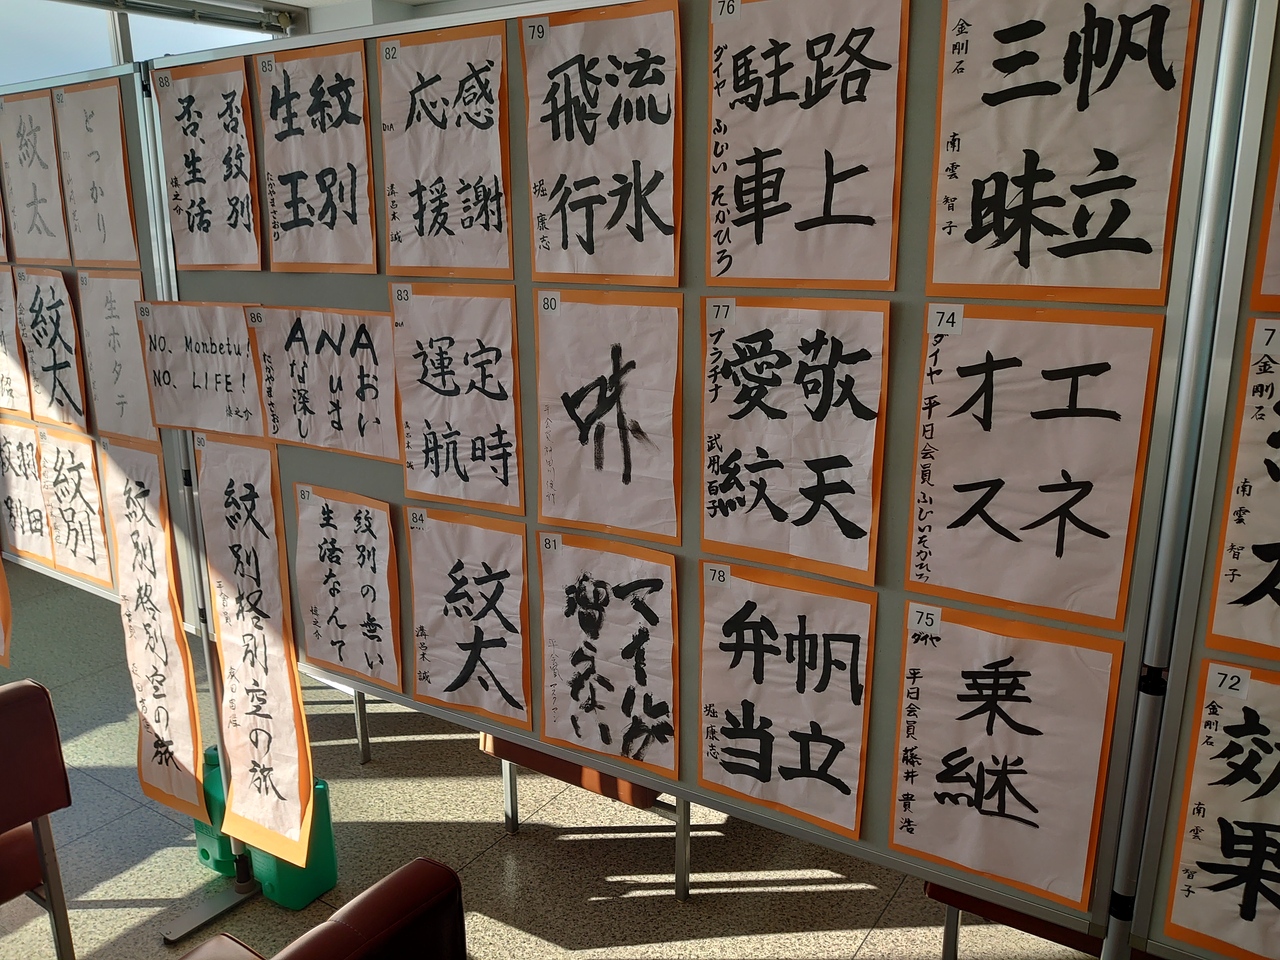 92
どっかり
紋太
88
否、紋別
否、生活
慎之介
85
紋別
生玉
たかやまさおり
82
DIA
感謝
応援
溝呂木 誠
79
流氷
飛行
堀 康志
76
ダイヤ ふじい たかひろ
路上
駐車
金剛石 南雲 智子
帆立
三昧
95
紋太
93
生ホタテ
89
NO, Monbetu!
NO, LIFE!
慎之介
86
ANA おいしいな
たかやまさおり
83
DIA
定時
運航
溝呂木 誠
80
味
77
プラチナ 武用百子
敬天
愛紋
74
ダイヤ 平日会員 ふじいたかひろ
エネ
オス
金剛石
南雲 智子
羽田
紋別
紋別
紋別柊別空の旅
90
紋別柊別空の旅
87
紋別の無い
生活なんて
慎之介
84
紋太
溝呂木 誠
81
マイルが
増えない
78
帆立
弁当
堀 康志
75
ダイヤ
平日会員 藤井 貴浩
乗継
72
金剛石
南雲 智子
効果